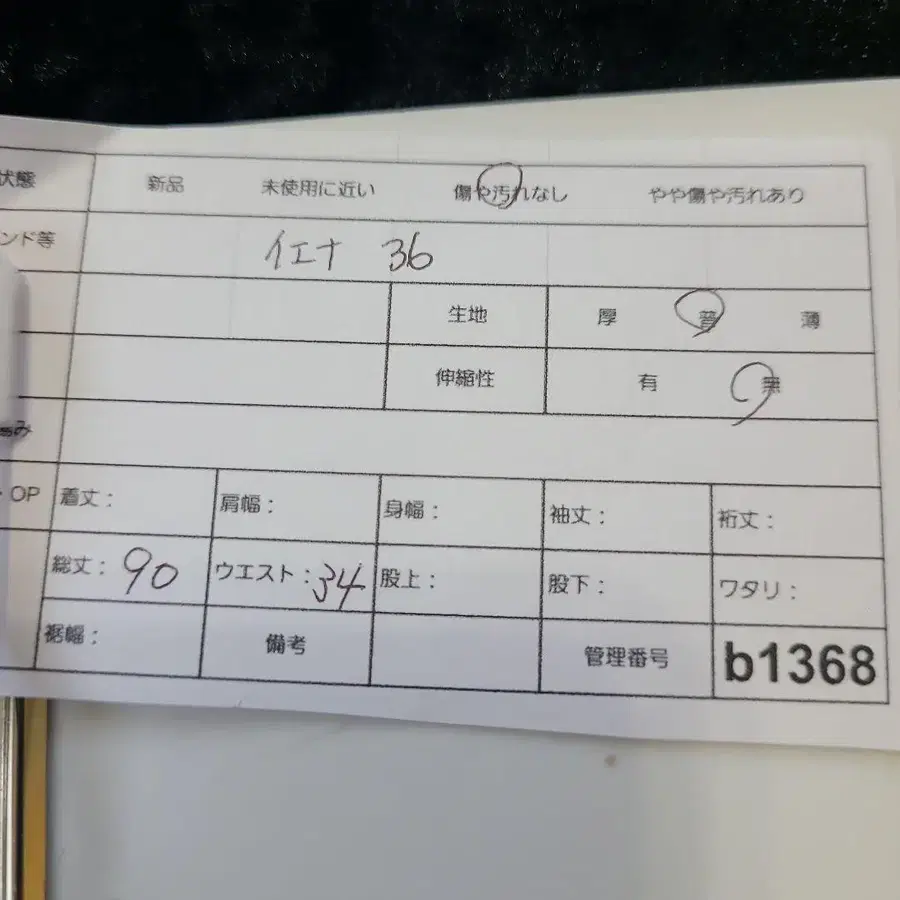 状態 新品 未使用に近い 傷や汚れなし やや傷や汚れあり
ンド等 イエナ 36
生地 厚 普 薄
伸縮性 有 無
み
・OP 着丈： 肩幅： 身幅： 袖丈： 裄丈：
総丈：90 ウエスト：34 股上： 股下： ワタリ：
裾幅： 備考 管理番号 b1368